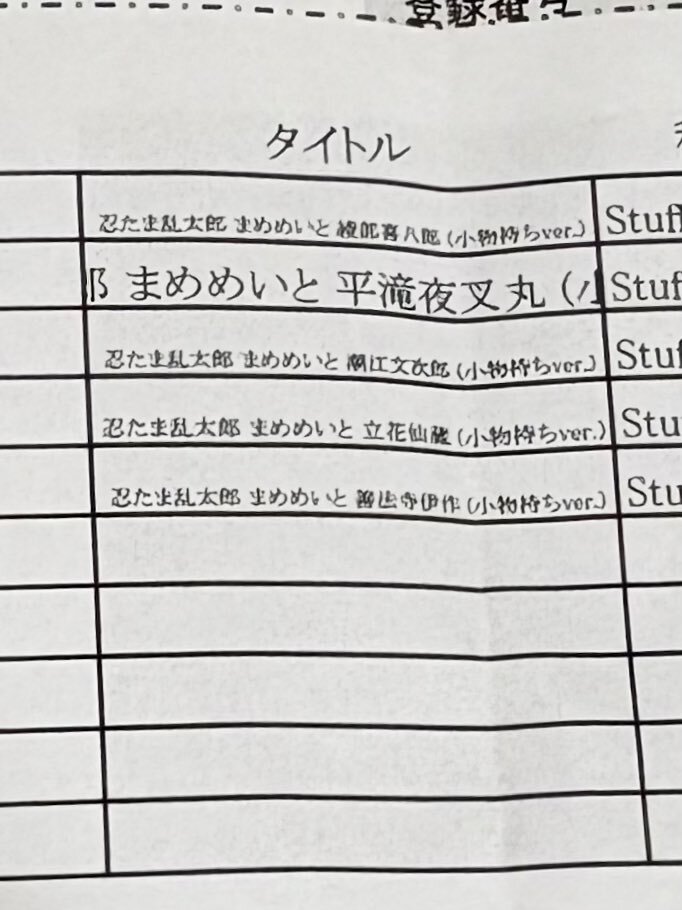 タイトル
忍たま乱太郎 まめめいと 綾部喜八郎 (小物持ちver.) Stuff
まめめいと 平滝夜叉丸 ( Stuf
忍たま乱太郎 まめめいと 潮江文次郎 (小物持ちver.) Stuf
忍たま乱太郎 まめめいと 立花仙蔵 (小物持ちver.) Stu
忍たま乱太郎 まめめいと 善法寺伊作 (小物持ちver.) Stu